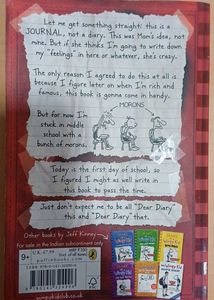 Let me get something straight: this is a
JOURNAL, not a diary. This was Mom's idea, not
mine. But if she thinks I'm going to write down
my "feelings" in here or whatever, she's crazy.
The only reason I agreed to do this at all is
because I figure later on when I'm rich and
famous, this book is gonna come in handy.
MORONS
But for now I'm
stuck in middle
school with a
bunch of morons.
Today is the first day of school, so
I figured I might as well write in
this book to pass the time.
Just don't expect me to be all "Dear Diary
this and "Dear Diary" that.
Other books by Jeff Kinney
For sale in the Indian subcontinent only
9+
U.K. £7.99
ISBN